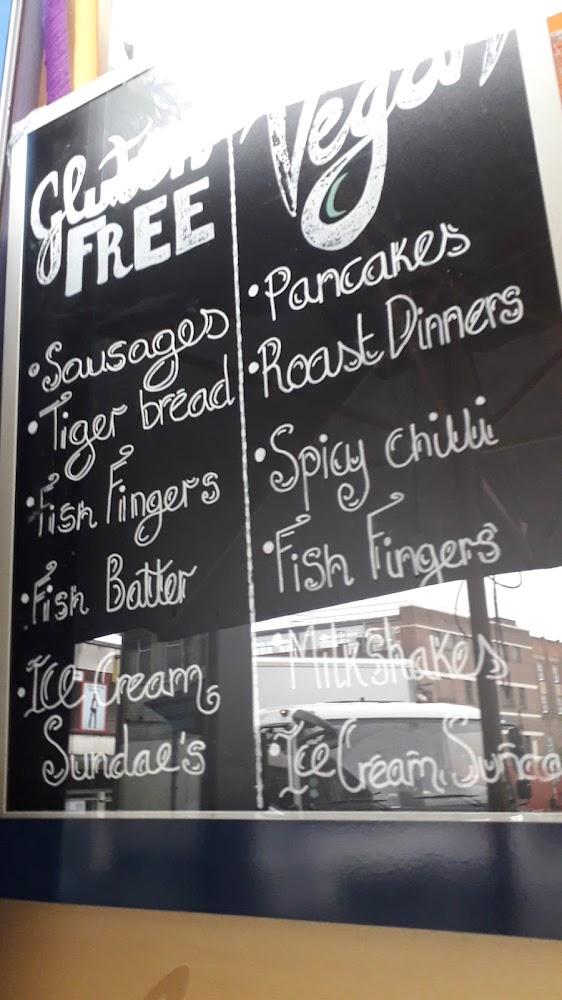 Gluten
FREE
• Sausages
• Tiger bread
• Fish Fingers
• Fish Batter
• Ice Cream
Sundae's
Vegan
• Pancakes
• Roast Dinners
• Spicy Chilli
• Fish Fingers
• Milkshakes
Ice Cream